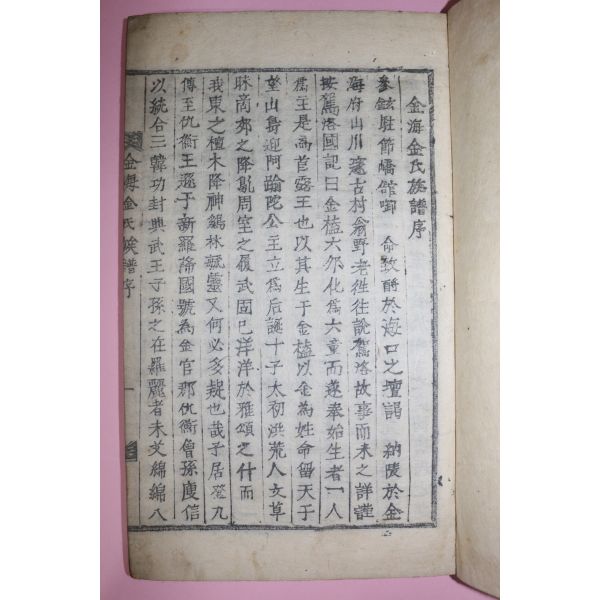 金海金氏族譜序
金海府山川遼古村翁野老徃徃說駕洛故事而未之詳謹
按駕洛國記曰金榼六卵化爲六童而遂奉始生者一人
爲主是爲首露王也以其生于金榼以金為姓命留天于
望山島迎阿踰陀公主立爲后誕十子太初洪荒人文草
昧商郊之降鳦周室之履武固已洋洋於雅頌之什而
我東之檀木降神鷄林毓靈又何必多疑也哉子居登九
傳至仇衡王遜于新羅除國號為金官郡仇衡曾孫庾信
以統合三韓功封興武王子孫之在羅麗者未艾綿綿八
金海金氏族譜序
一